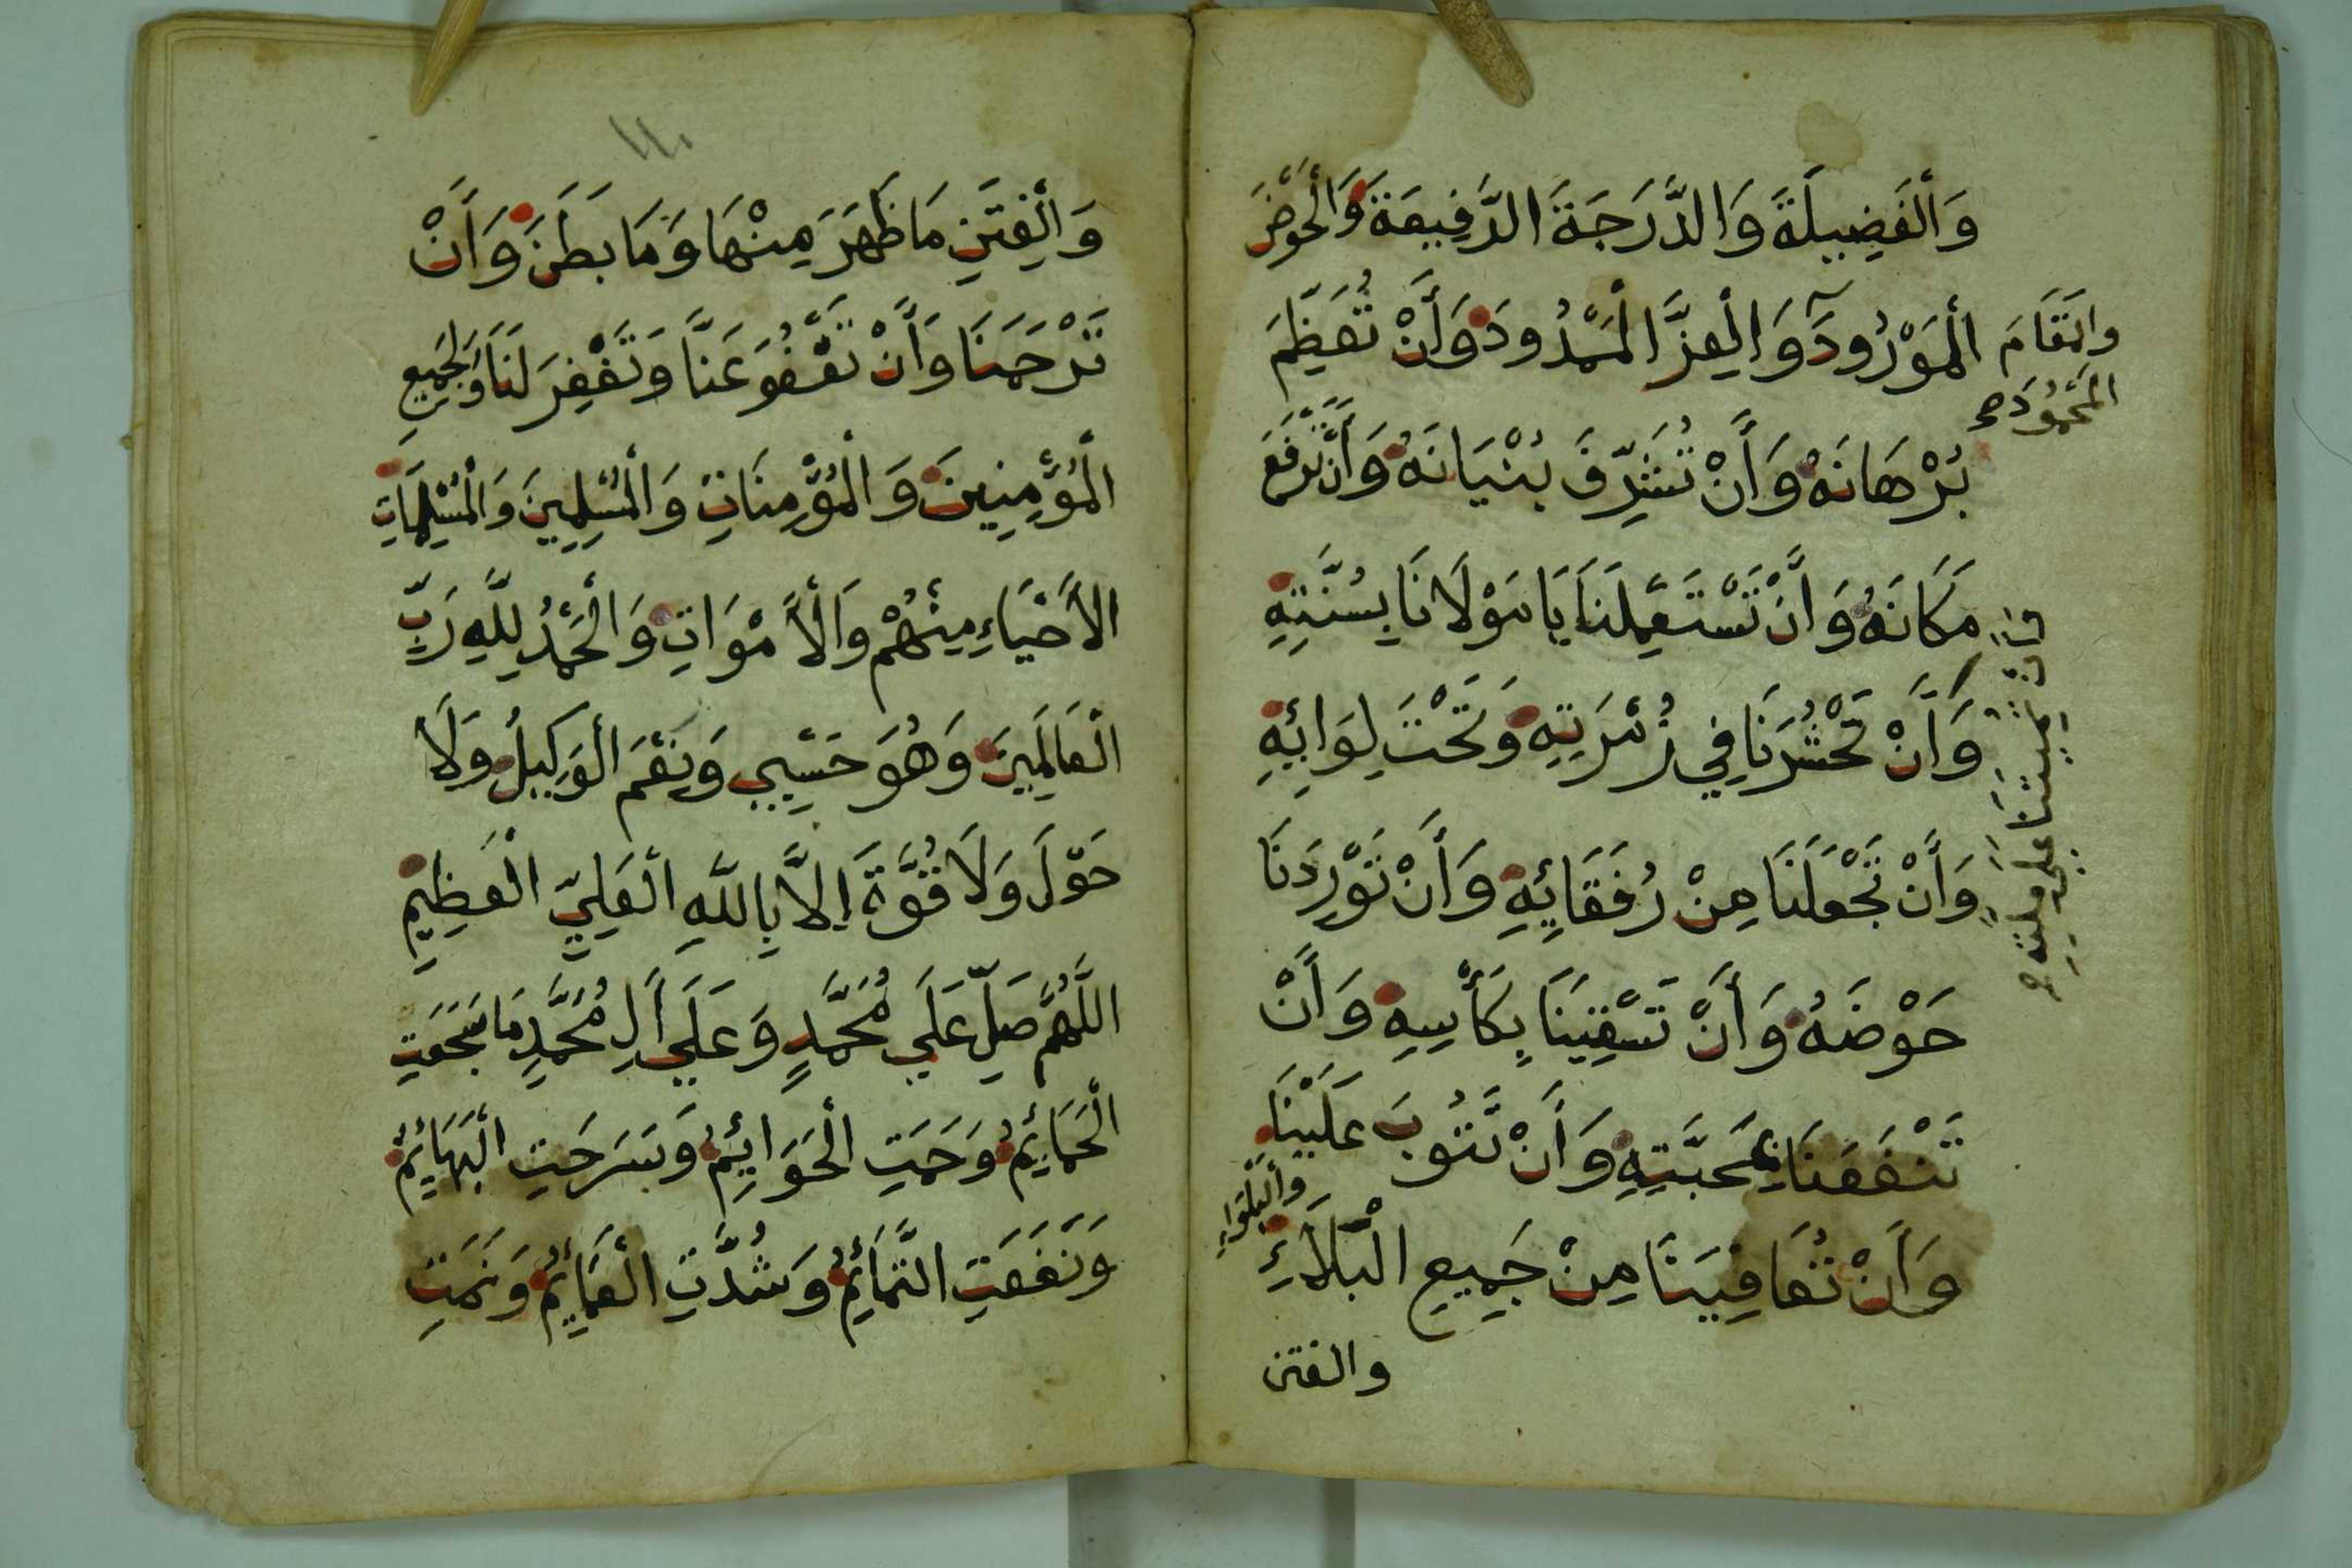 وَالْفَضِيلَةَ وَالدَّرَجَةَ الرَّفِيعَةَ وَالْحَوْضَ
الْمَوْرُودَ وَالْعِزَّ الْمَمْدُودَ وَأَنْ تُعَظِّمَ
والمَقَامَ
المَحْمُودَ صح
بُرْهَانَهُ وَأَنْ تُشَرِّفَ بُنْيَانَهُ وَأَنْ تَرْفَعَ
مَكَانَهُ وَأَنْ تَسْتَعْمِلَنَا يَا مَوْلَانَا بِسُنَّتِهِ
وَأَنْ تُمِيتَنَا عَلَى مِلَّتِهِ
وَأَنْ تَحْشُرَنَا فِي زُمْرَتِهِ وَتَحْتَ لِوَائِهِ
وَأَنْ تَجْعَلَنَا مِنْ رُفَقَائِهِ وَأَنْ تُورِدَنَا
حَوْضَهُ وَأَنْ تَسْقِيَنَا بِكَأْسِهِ وَأَنْ
تَنْفَعَنَا بِمَحَبَّتِهِ وَأَنْ تَتُوبَ عَلَيْنَا
وَأَنْ تُعَافِيَنَا مِنْ جَمِيعِ الْبَلَاءِ
وَالْبَلْوَاءِ
والفتن
١١٠
وَالْفِتَنِ مَا ظَهَرَ مِنْهَا وَمَا بَطَنَ وَأَنْ
تَرْحَمَنَا وَأَنْ تَعْفُوَ عَنَّا وَتَغْفِرَ لَنَا وَلِجَمِيعِ
الْمُؤْمِنِينَ وَالْمُؤْمِنَاتِ وَالْمُسْلِمِينَ وَالْمُسْلِمَاتِ
الْأَحْيَاءِ مِنْهُمْ وَالْأَمْوَاتِ وَالْحَمْدُ لِلَّهِ رَبِّ
الْعَالَمِينَ وَهُوَ حَسْبِي وَنِعْمَ الْوَكِيلُ وَلَا
حَوْلَ وَلَا قُوَّةَ إِلَّا بِاللَّهِ الْعَلِيِّ الْعَظِيمِ
اللَّهُمَّ صَلِّ عَلَى مُحَمَّدٍ وَعَلَى آلِ مُحَمَّدٍ مَا سَجَعَتِ
الْحَمَائِمُ وَحَمَتِ الْحَوَائِمُ وَسَرَحَتِ الْبَهَائِمُ
وَنَفَعَتِ التَّمَائِمُ وَشُدَّتِ الْعَمَائِمُ وَنَمَتِ